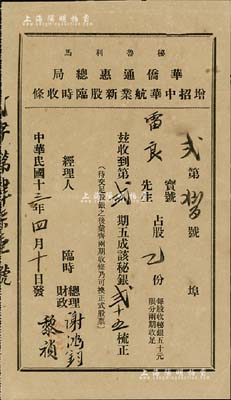 上海陽明拍賣
秘魯利馬
華僑通惠總局
增招中華航業新股臨時收條
第 號 埠
雷良 寶號 先生 占股 乙 份 每股收秘銀五十元 限分兩期收足
茲收到第 弍 期五成該秘銀 弍十五 梳正
(待交足股銀之後彙齊兩期收條乃可換正式股票)
經理人 臨時 總理 謝鴻鈞 財政 黎禎
中華民國十三年四月十日發